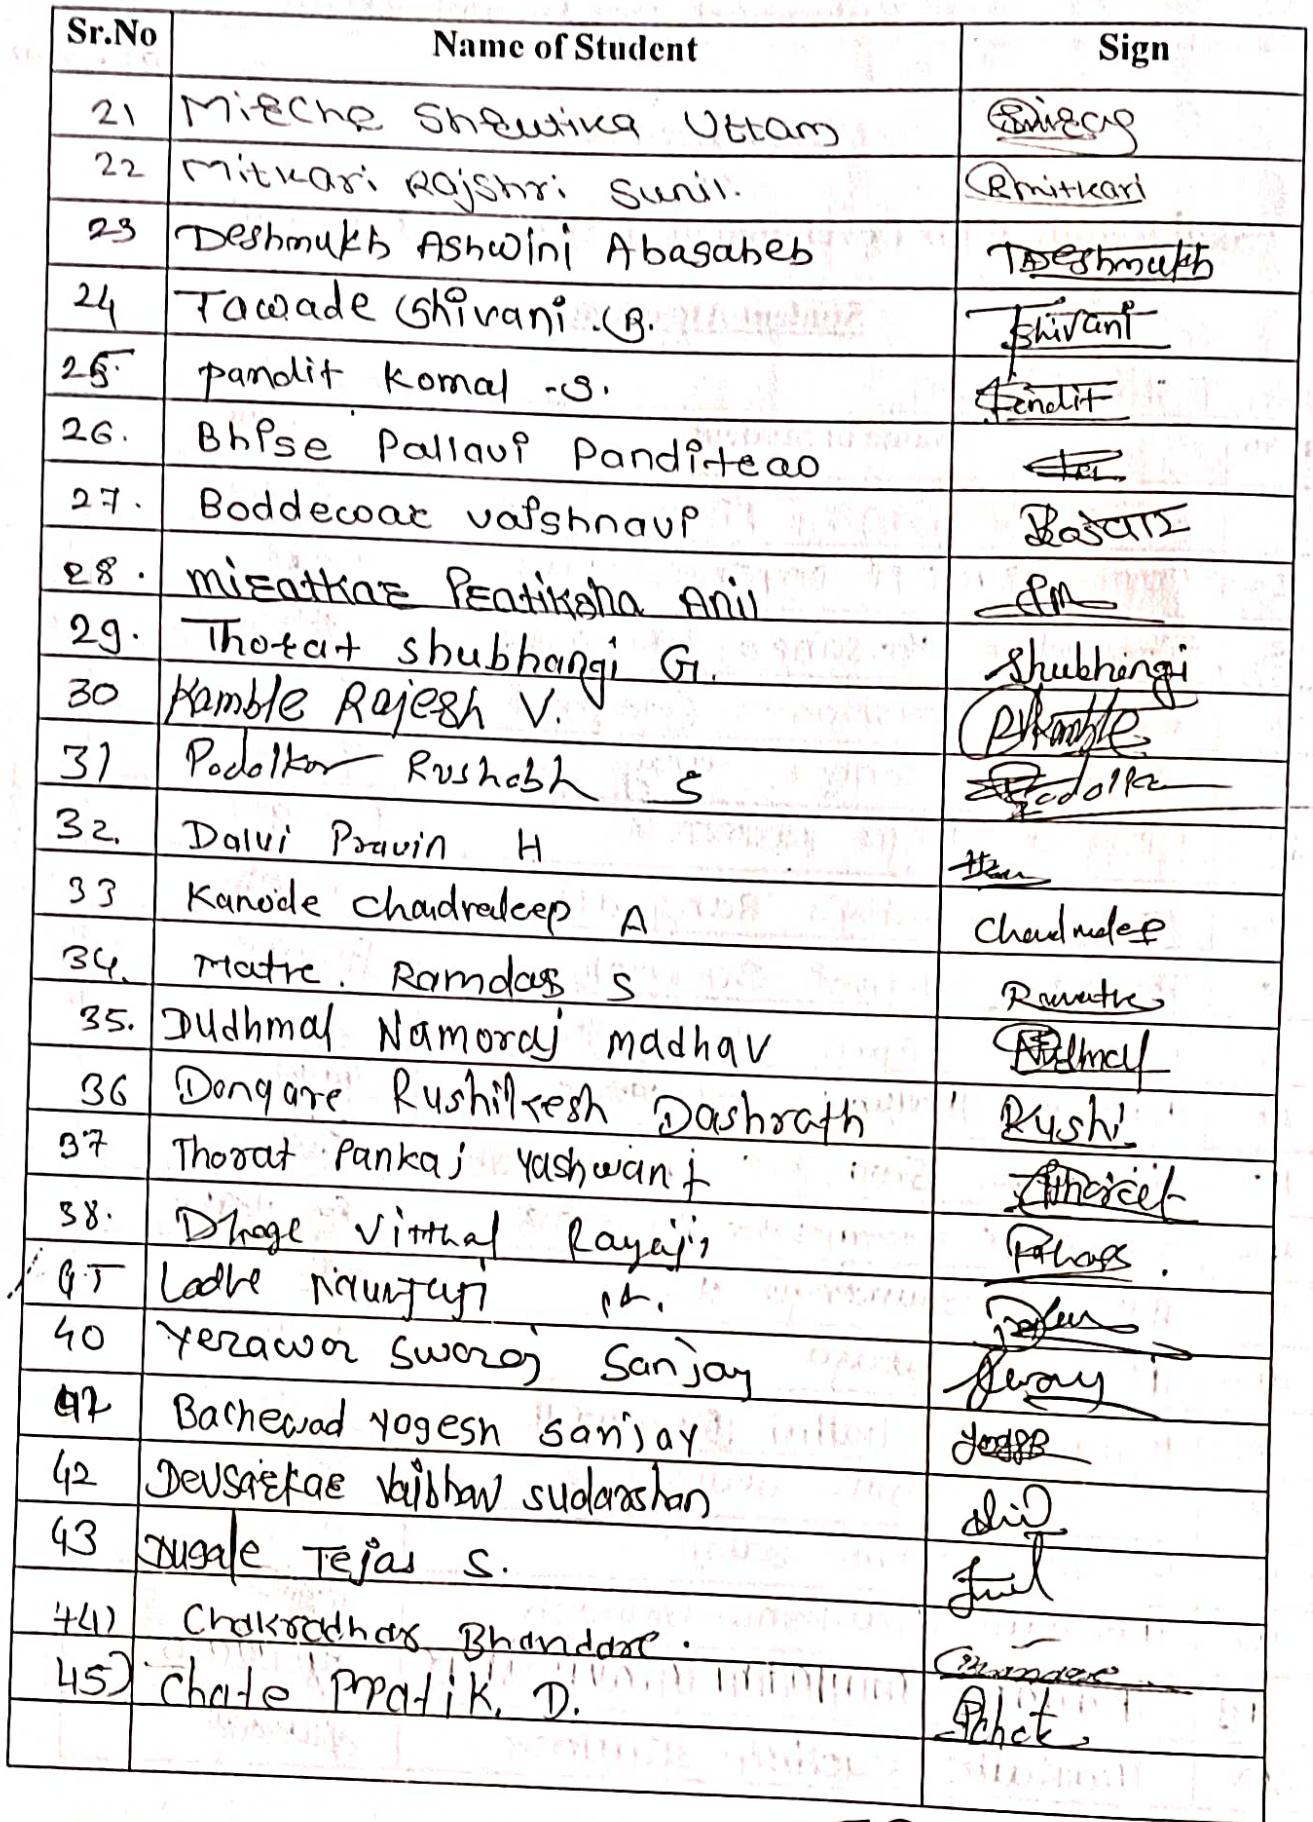 Sr.No Name of Student Sign
21 Mirche Shrutika Uttam
22 Mitkari Rajshri Sunil. Rmitkari
23 Deshmukh Ashwini Abasaheb Deshmukh
24 Tawade Shivani .B. Shivani
25. Pandit Komal -S. Pendit
26. Bhise Pallavi Panditrao
27. Boddewar vaishnavi
28. miratkar Pratiksha Anil PM
29. Thorat Shubhangi G. Shubhangi
30 Kamble Rajesh V. RKamble
31 Padalkar Rushabh S Padalkar
32. Dalvi Pravin H
33 Kanode Chandradeep A Chandradeep
34. Matre. Ramdas S
35. Dudhmal Namoraj madhav Dudhmal
36 Dongare Rushikesh Dashrath Rushi
37 Thorat Pankaj Yashwant
38. Dhage Vitthal Rayaji
Ladke
40 Yerawar Swaraj Sanjay
41 Bachewad Yogesh Sanjay
42 Devsarkar Vaibhav sudarshan
43 Dugale Tejas S.
44) Chakradhar Bhandare. Bhandare
45) Chate Pratik. D. Pchate